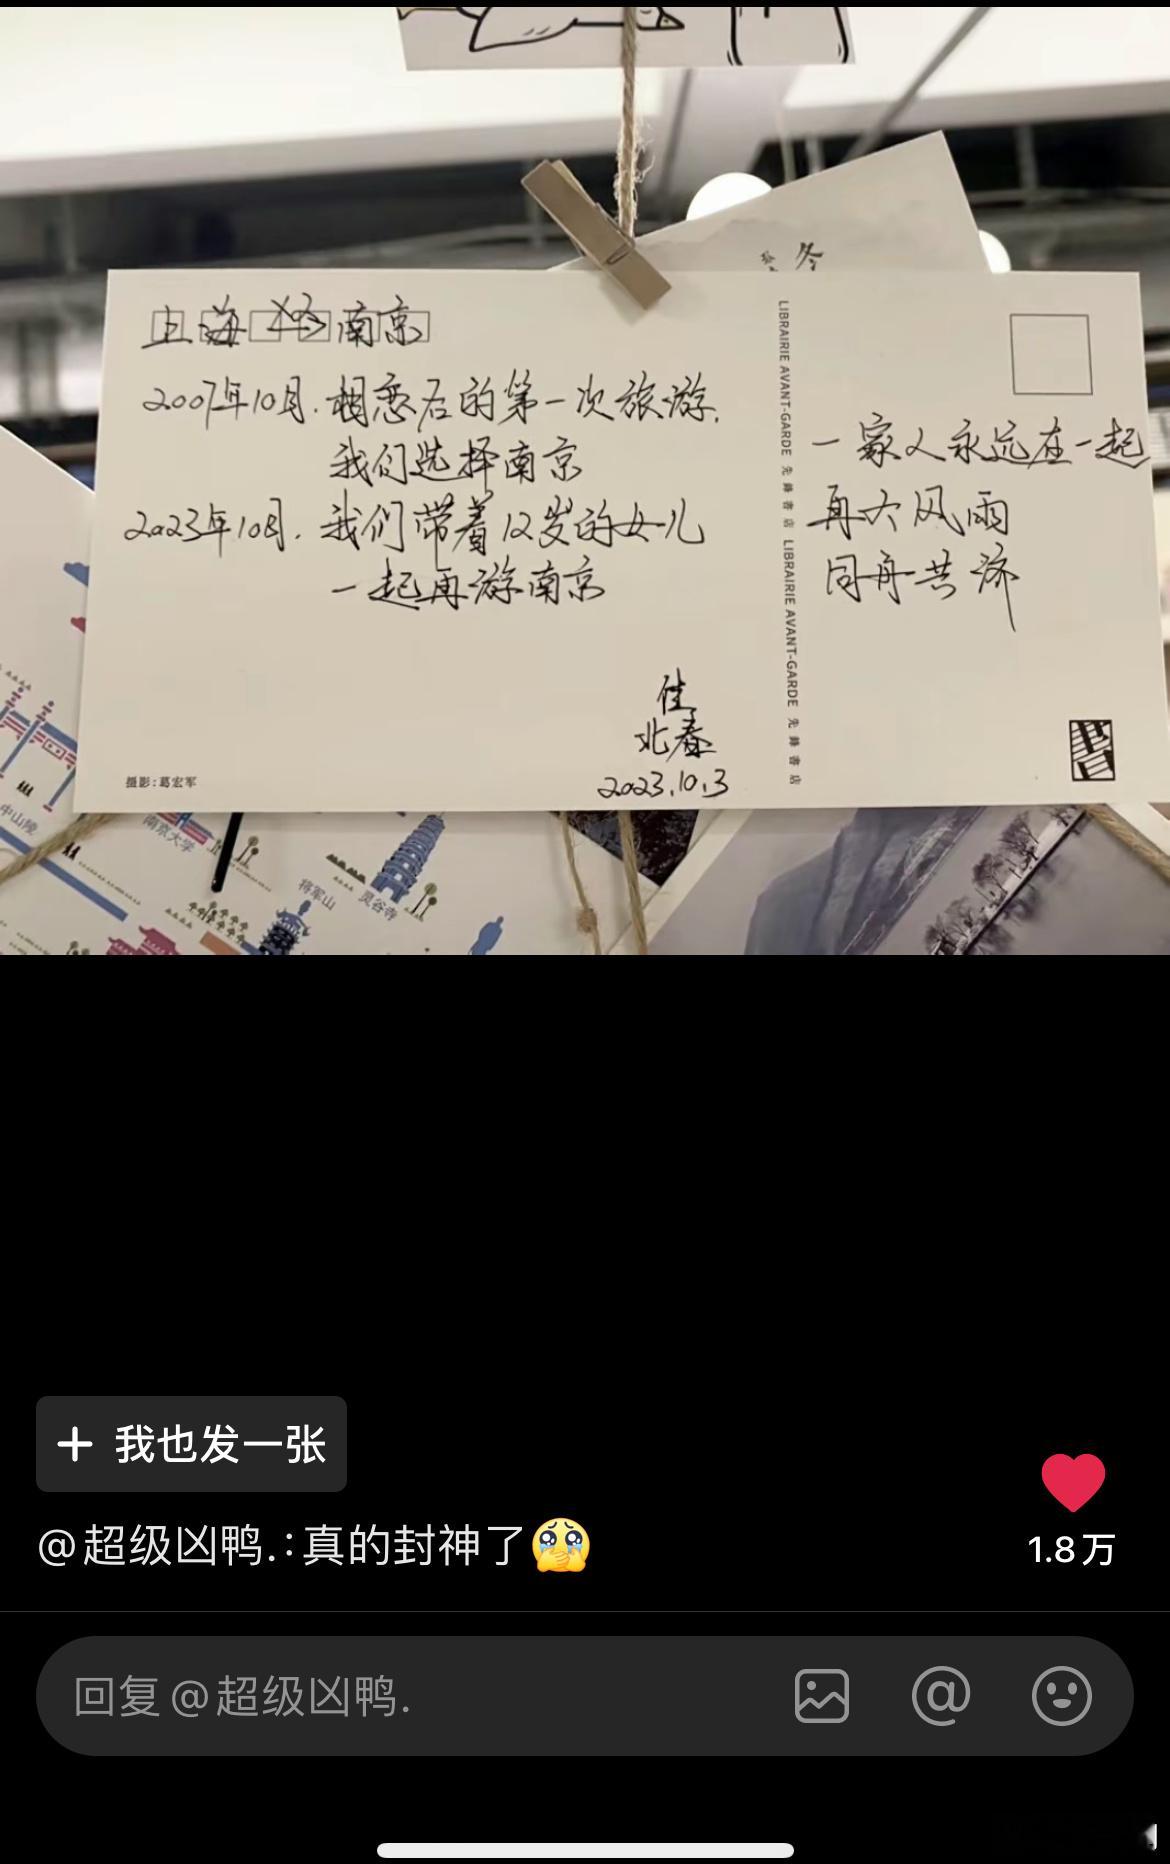 冬
上海 南京
2007年10月.相恋后的第一次旅游.
我们选择南京
2023年10月.我们带着12岁的女儿
一起再游南京
佳
北春
2023.10.3
摄影:葛宏军
LIBRAIRIE AVANT-GARDE 先鋒書店 LIBRAIRIE AVANT-GARDE 先鋒書店
一家人永远在一起
再大风雨
同舟共济
中山陵
南京大学
将军山
灵谷寺
我也发一张
@超级凶鸭.:真的封神了
1.8万
回复@超级凶鸭.